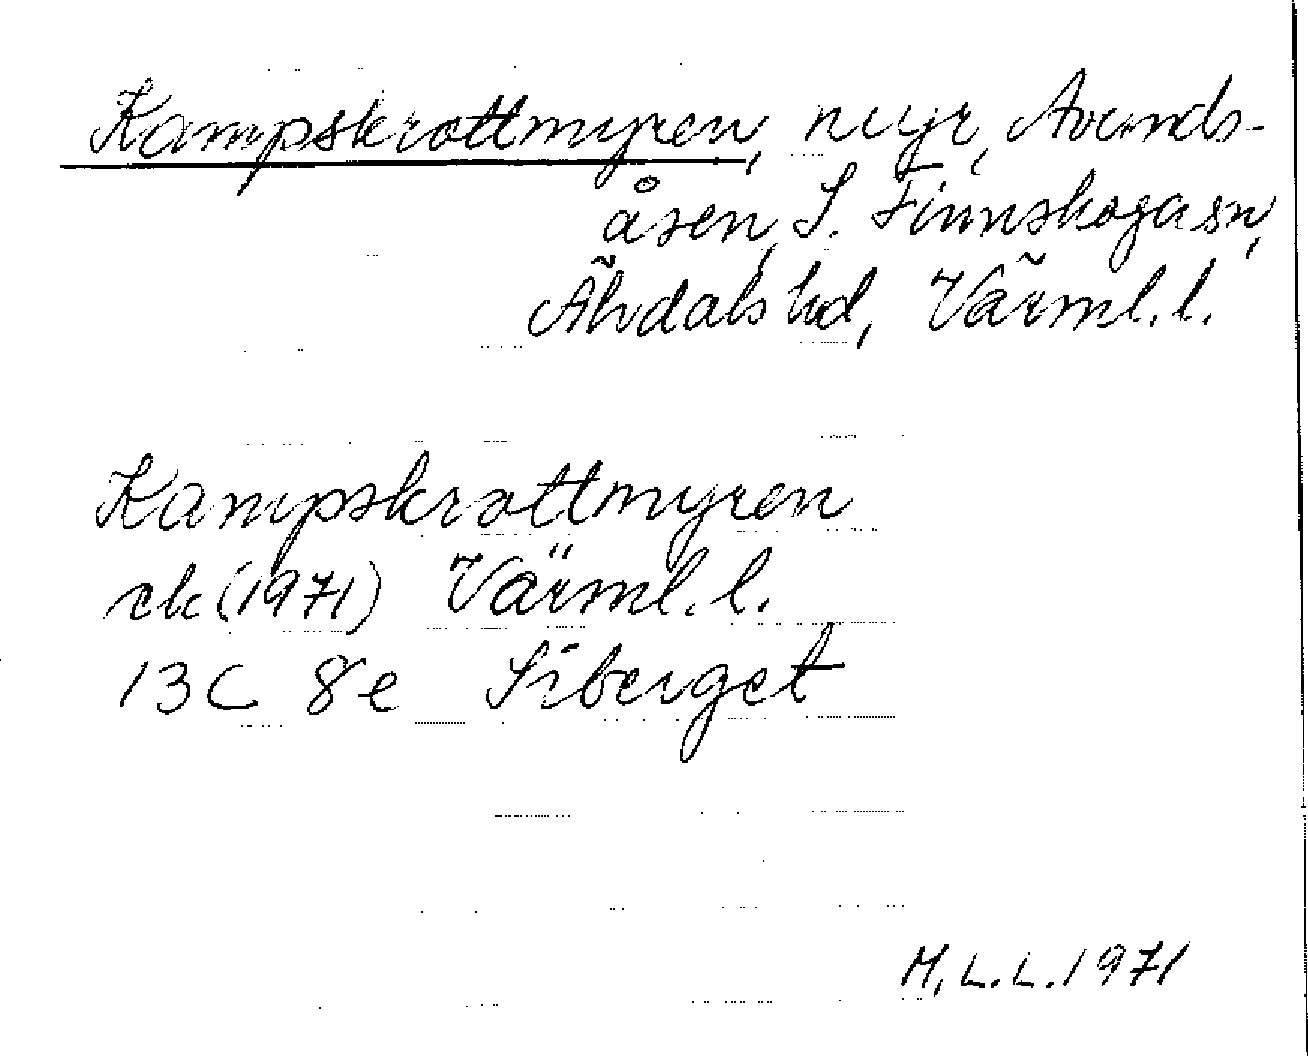 Kampskrattmyren, myr, Avunds-
åsen, S. Finnskoga sn,
Älvdals hd, Värml. l.
Kampskrattmyren
ek (1971) Värml. l.
13C 8e Siberget
M.L.L. 1971